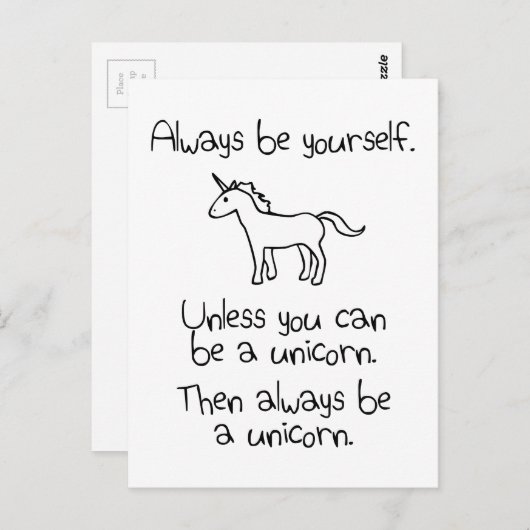 Place
Always be yourself.
Unless you can
be a unicorn.
Then always be
a unicorn.